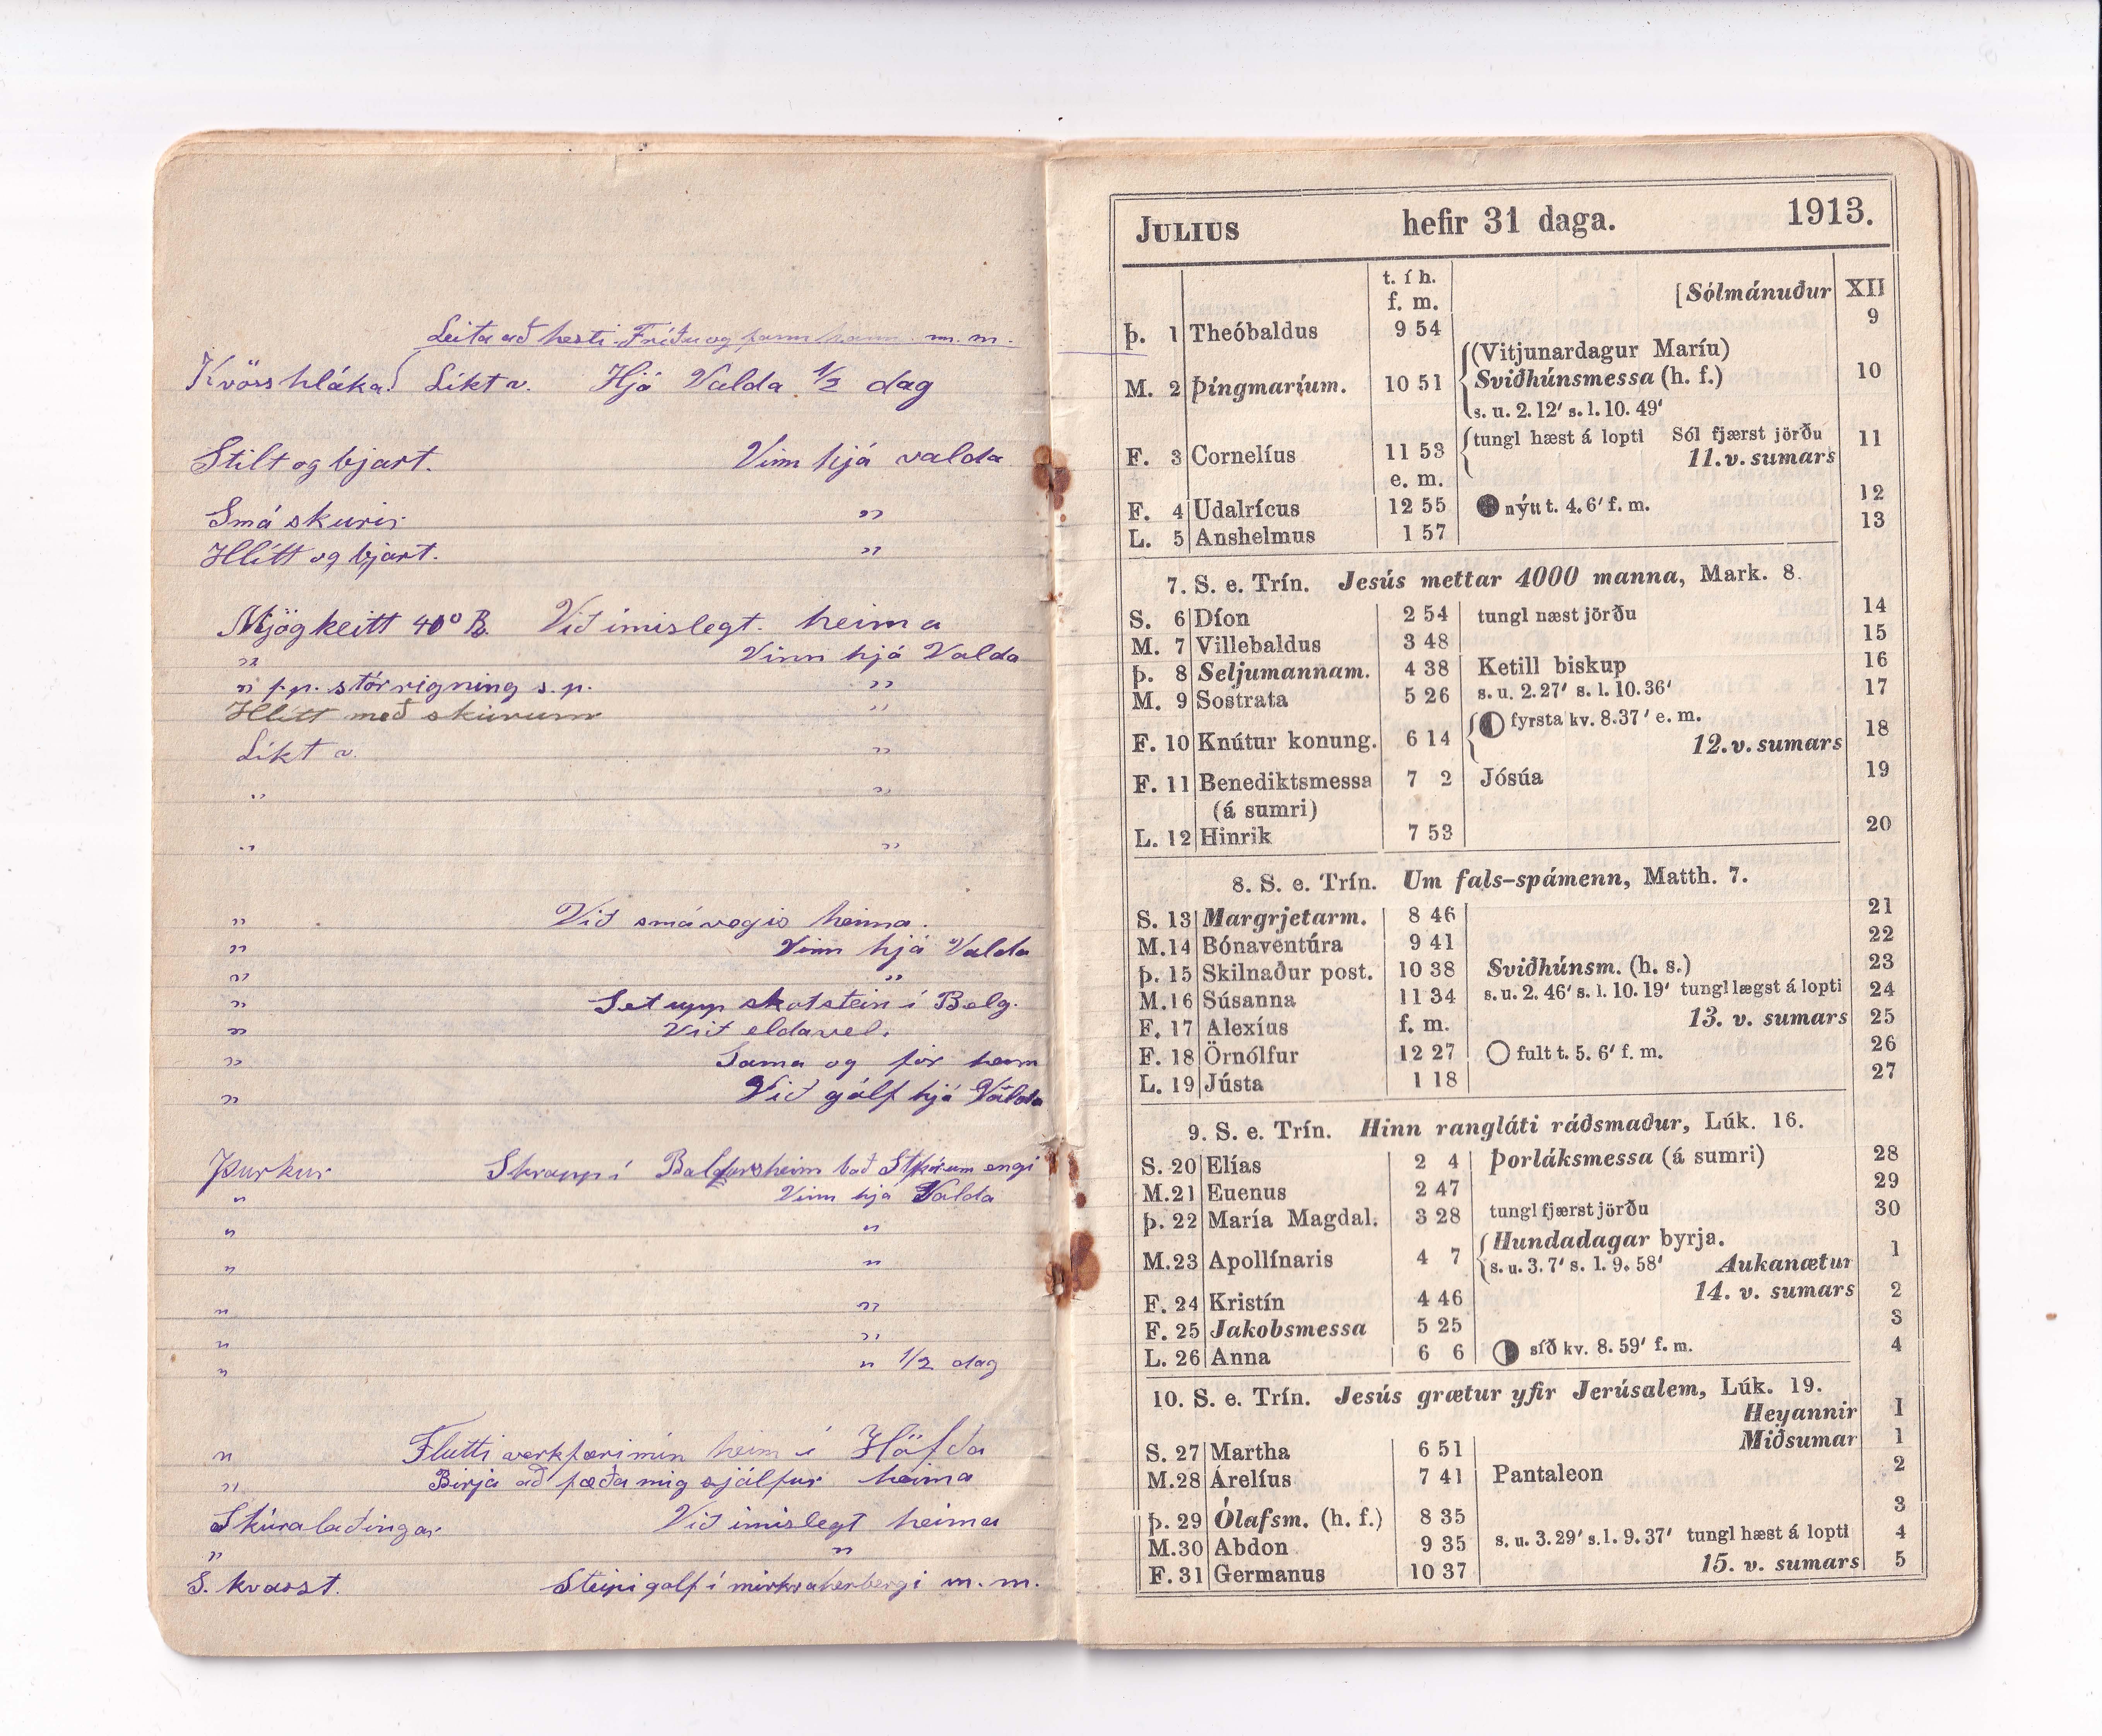 Leita að hesti Fríðu og fann hann m. m.
Kvöss hláka. Líkt v. Hjá Valda 1/2 dag
Stilt og bjart. Vinn hjá valda
Smá skurir "
Hlítt og bjart. "
Mjög heitt 40° R. Við ímislegt heima
" Vinn hjá Valda
" f.p. stórrigning s.p. "
Hlítt með skúrum "
Líkt v. "
" "
" "
" Við smávegis heima.
" Vinn hjá Valda
" "
" Set upp skotstein í Belg.
" Við eldavel.
" Sama og fór heim
" Við gólf hjá Valda
Þurkur Skrapp í Baldursheim bað Stþórum engi
" Vinn hjá Valda
" "
" "
" "
" "
" " 1/2 dag
" Flutti verkfæri mín heim í Höfða
" Birja að fæða mig sjálfur heima
Skúraleðingar Við imislegt heima
" "
S. kvasst. Steipi golf í mirkraherbergi m. m.
JULIUS hefir 31 daga. 1913.
t. í h.
f. m. [Sólmánuður XII
Þ. 1 Theóbaldus 9 54 9
M. 2 Þíngmaríum. 10 51 (Vitjunardagur Maríu) 10
Sviðhúnsmessa (h. f.)
s. u. 2. 12' s. l. 10. 49'
F. 3 Cornelíus 11 53 tungl hæst á lopti Sól fjærst jörðu 11
11. v. sumars
e. m.
F. 4 Udalrícus 12 55 nýtt t. 4. 6' f. m. 12
L. 5 Anshelmus 1 57 13
7. S. e. Trín. Jesús mettar 4000 manna, Mark. 8.
S. 6 Díon 2 54 tungl næst jörðu 14
M. 7 Villebaldus 3 48 15
Þ. 8 Seljumannam. 4 38 Ketill biskup 16
M. 9 Sostrata 5 26 s. u. 2. 27' s. l. 10. 36' 17
F. 10 Knútur konung. 6 14 fyrsta kv. 8. 37' e. m. 18
12. v. sumars
F. 11 Benediktsmessa 7 2 Jósúa 19
(á sumri)
L. 12 Hinrik 7 53 20
8. S. e. Trín. Um fals-spámenn, Matth. 7.
S. 13 Margrjetarm. 8 46 21
M. 14 Bónaventúra 9 41 22
Þ. 15 Skilnaður post. 10 38 Sviðhúnsm. (h. s.) 23
M. 16 Súsanna 11 34 s. u. 2. 46' s. l. 10. 19' tungl lægst á lopti 24
F. 17 Alexíus f. m. 13. v. sumars 25
F. 18 Örnólfur 12 27 fult t. 5. 6' f. m. 26
L. 19 Jústa 1 18 27
9. S. e. Trín. Hinn rangláti ráðsmaður, Lúk. 16.
S. 20 Elías 2 4 Þorláksmessa (á sumri) 28
M. 21 Euenus 2 47 29
Þ. 22 María Magdal. 3 28 tungl fjærst jörðu 30
M. 23 Apollínaris 4 7 Hundadagar byrja. 1
s. u. 3. 7' s. l. 9. 58' Aukanætur
F. 24 Kristín 4 46 14. v. sumars 2
F. 25 Jakobsmessa 5 25 3
L. 26 Anna 6 6 síð kv. 8. 59' f. m. 4
10. S. e. Trín. Jesús grætur yfir Jerúsalem, Lúk. 19.
Heyannir I
S. 27 Martha 6 51 Miðsumar 1
M. 28 Árelíus 7 41 Pantaleon 2
Þ. 29 Ólafsm. (h. f.) 8 35 3
M. 30 Abdon 9 35 s. u. 3. 29' s. l. 9. 37' tungl hæst á lopti 4
F. 31 Germanus 10 37 15. v. sumars 5